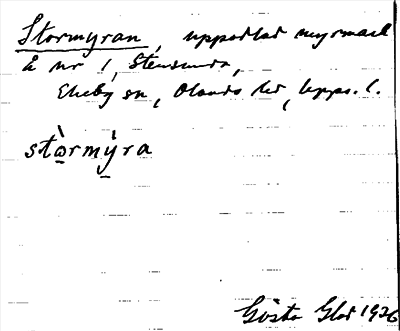 Stormyran, uppodlad myrmark
å nr 1, Stensunda,
Ekeby sn, Olands hd, Upps. l.
stɷ̀rmýra
Gösta Glad 1926